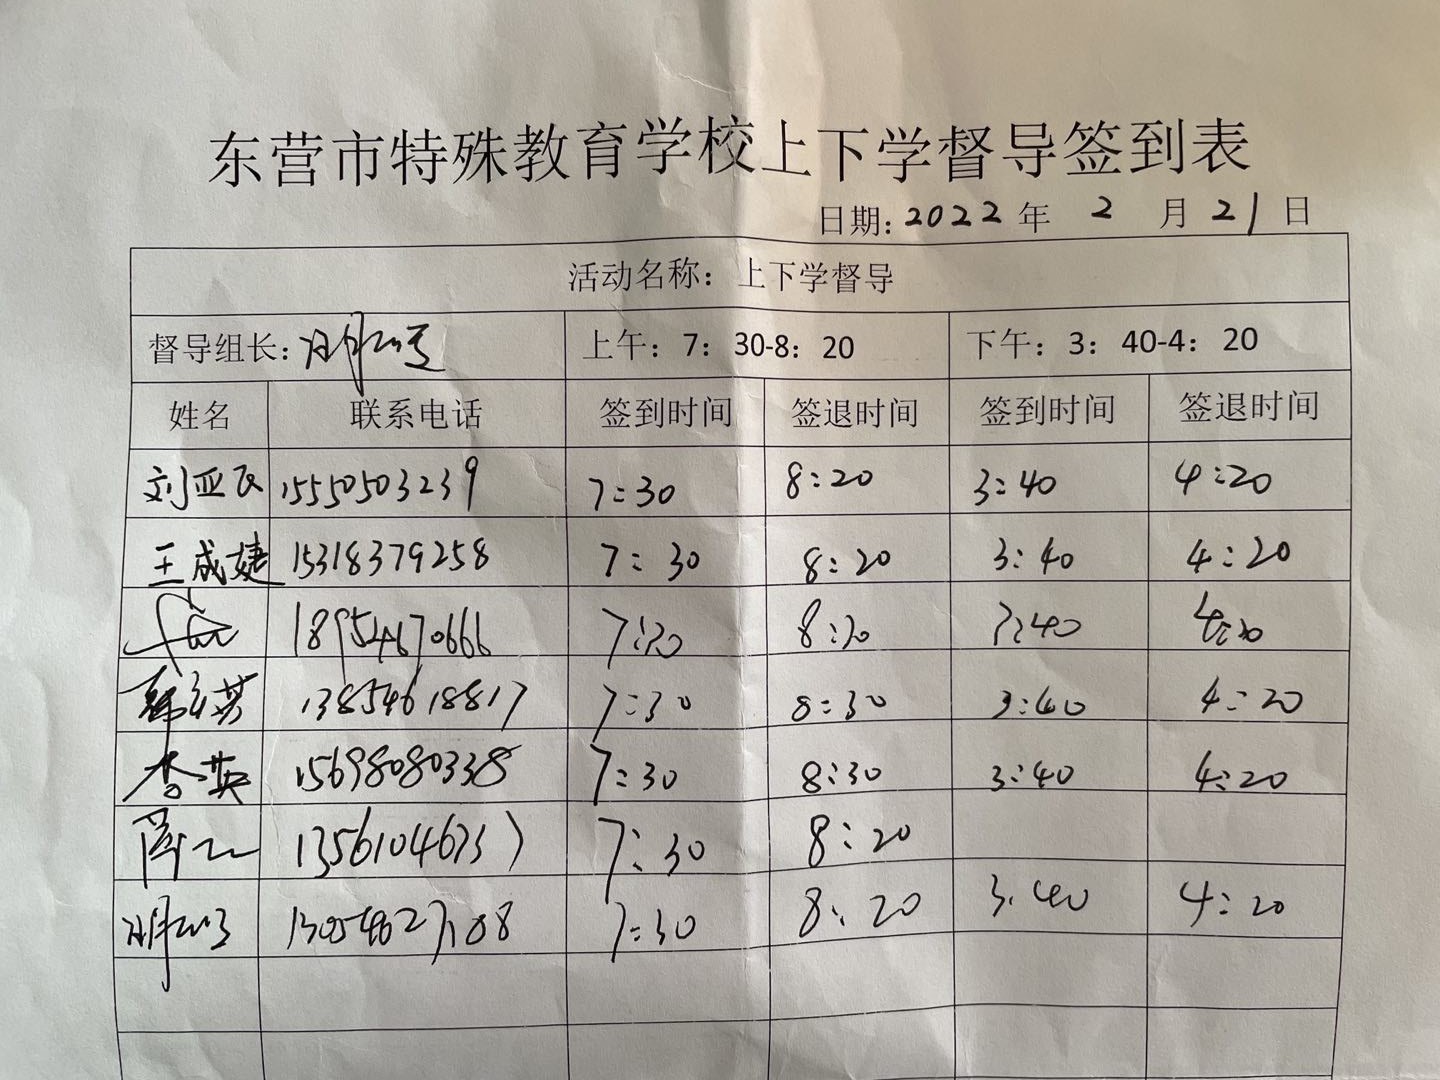 东营市特殊教育学校上下学督导签到表
日期: 2022 年 2 月 21 日
活动名称: 上下学督导
督导组长: 上午: 7: 30-8: 20 下午: 3: 40-4: 20
姓名 联系电话 签到时间 签退时间 签到时间 签退时间
刘亚民 15550503239 7:30 8:20 3:40 4:20
王成婕 15318379258 7:30 8:20 3:40 4:20
18954670666 7:30 8:20 3:40 4:20
13854618817 7:30 8:30 3:40 4:20
李英 15698080338 7:30 8:30 3:40 4:20
7:30 8:20
7:30 8:20 3:40 4:20